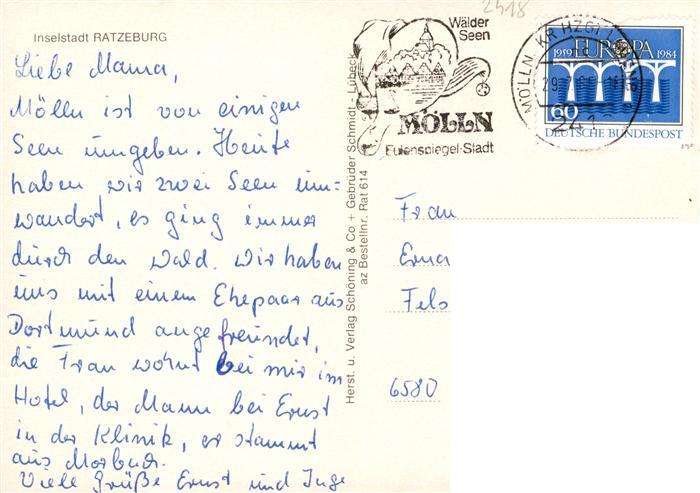 Inselstadt RATZEBURG
Liebe Mama,
Mölln ist von einigen
Seen umgeben. Heute
haben wir zwei Seen um-
wandert, es ging immer
durch den Wald. Wir haben
uns mit einem Ehepaar aus
Dortmund angefreundet,
die Frau wohnt bei mir im
Hotel, der Mann bei Ernst
in der Klinik, er stammt
aus Morbach.
Viele Grüße Ernst und Inge
Herst. u. Verlag Schöning & Co + Gebrüder Schmidt - Lübeck
az Bestellnr. Rat 614
2418
Wälder
Seen
MÖLLN
Eulenspiegel-Stadt
MÖLLN KR HZGT
241
EUROPA
1959
1984
60
DEUTSCHE BUNDESPOST
Frau
Erna
Fels
6580